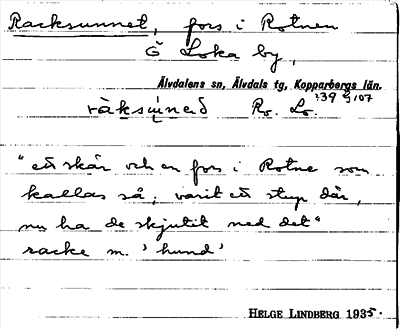 Racksunnet, fors i Rotnen
Ö Loka by,
Älvdalens sn, Älvdals tg, Kopparbergs län.
:39 G 107
Ro. Lo.
"ett skär och en fors i Rotne som
kallas så; varit ett stup där,
nu ha de skjutit ned det"
racke m. 'hund'
HELGE LINDBERG 1935.